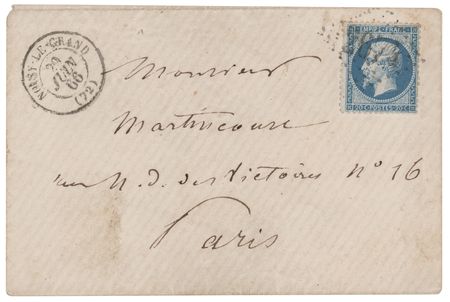 NOISY-LE-GRAND
20
JUIN
66
(72)
EMPIRE FRANC
20 C POSTES 20 C
Monsieur
Martincourt
rue N. D. des Victoires n° 16
Paris